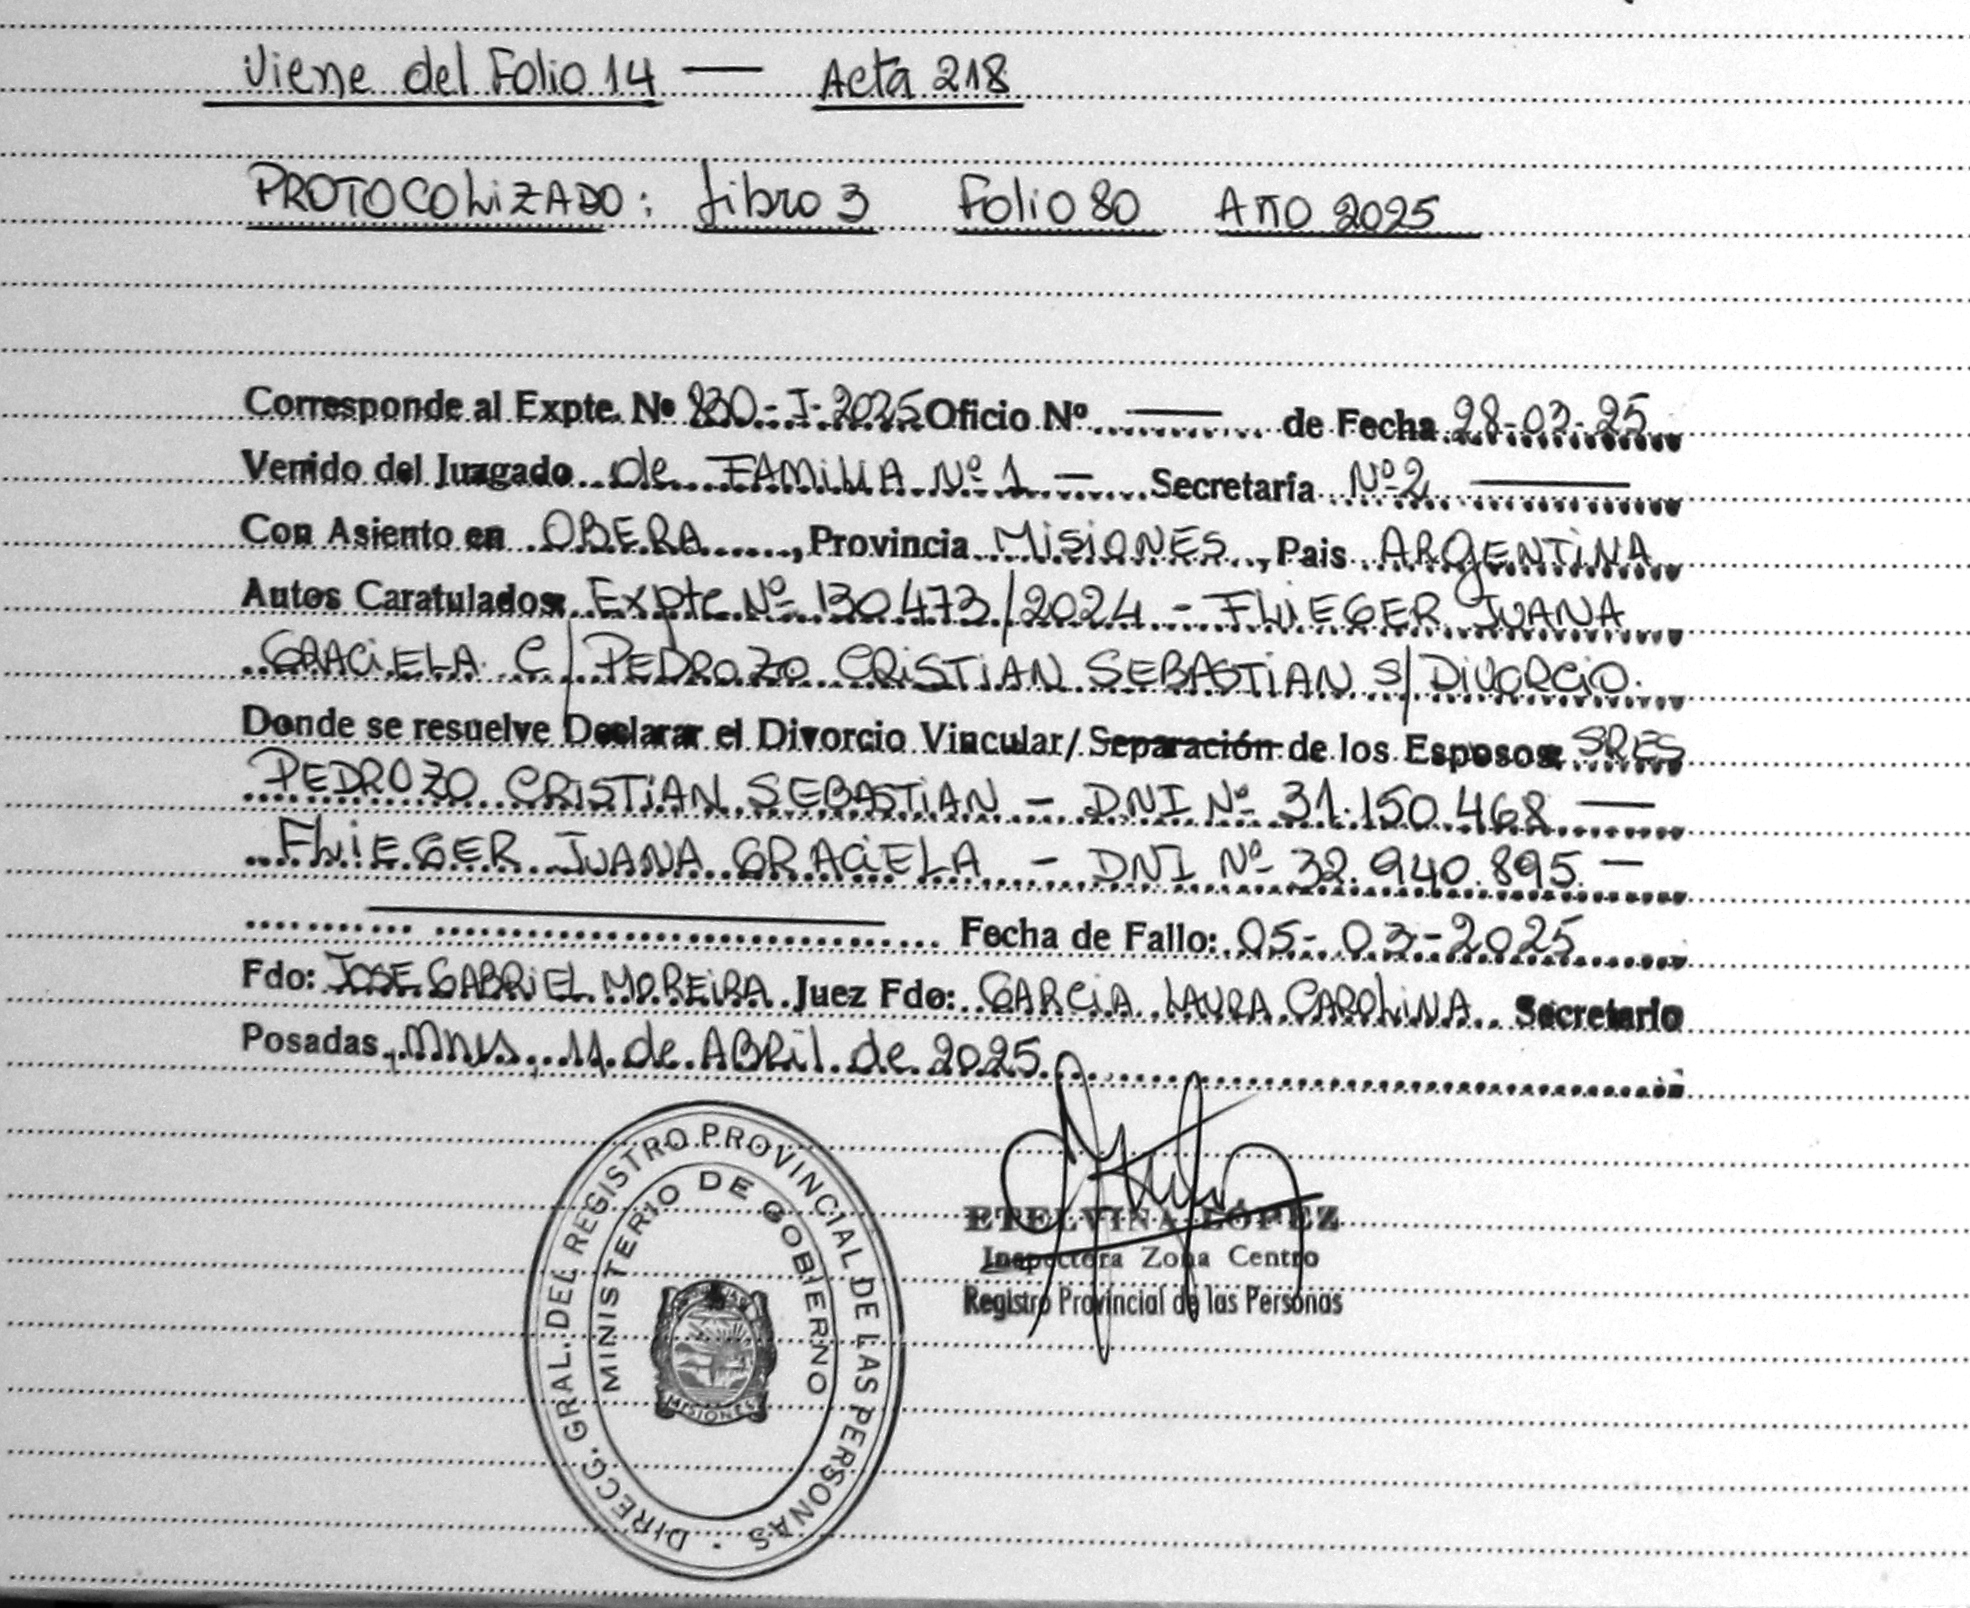 Viene del Folio 14 — Acta 218
PROTOCOLIZADO: Libro 3 Folio 80 AÑO 2025
Corresponde al Expte. Nº 830-I-2025 Oficio Nº — de Fecha 28-03-25
Venido del Juzgado de FAMILIA Nº 1 — Secretaría Nº 2 —
Con Asiento en OBERA, Provincia MISIONES, Pais ARGENTINA
Autos Caratulados: Expte Nº 130473/2024 - FLIEGER JUANA
GRACIELA C/ PEDROZO CRISTIAN SEBASTIAN S/ DIVORCIO.
Donde se resuelve Declarar el Divorcio Vincular/ Separación de los Esposos: SRES
PEDROZO CRISTIAN SEBASTIAN - DNI Nº 31.150.468 —
FLIEGER JUANA GRACIELA - DNI Nº 32.940.895. —
Fecha de Fallo: 05-03-2025
Fdo: JOSE GABRIEL MOREIRA Juez Fdo: GARCIA LAURA CAROLINA Secretario
Posadas, Mnes, 11 de ABRIL de 2025
DIRECC. GRAL. DEL REGISTRO PROVINCIAL DE LAS PERSONAS
MINISTERIO DE GOBIERNO
MISIONES
ETELVINA LÓPEZ
Inspectora Zona Centro
Registro Provincial de las Personas